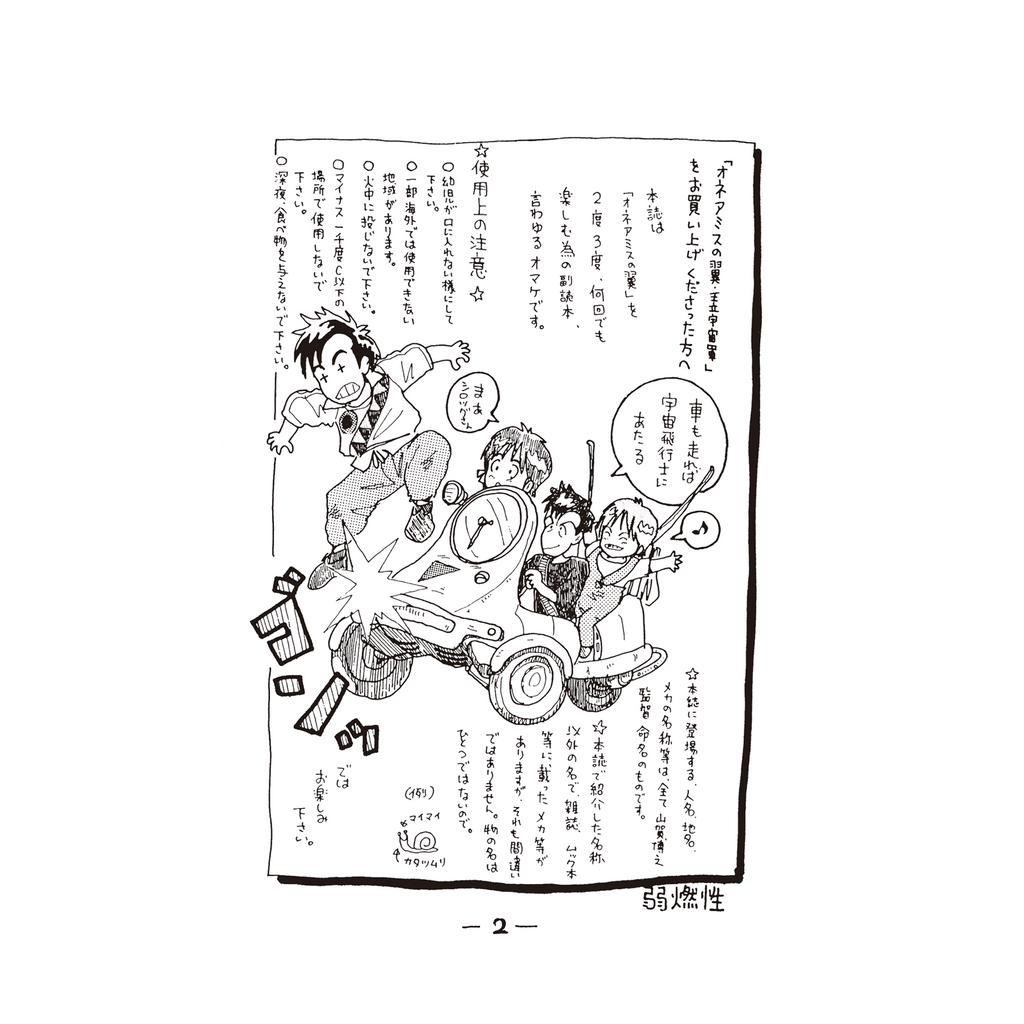 「オネアミスの翼・王立宇宙軍」
をお買い上げくださった方へ
本誌は
「オネアミスの翼」を
2度3度、何回でも
楽しむ為の副読本、
言わゆるオマケです。
☆使用上の注意☆
○幼児が口に入れない様にして
下さい。
○一部海外では使用できない
地域があります。
○火中に投じないで下さい。
○マイナス一千度C以下の
場所で使用しないで
下さい。
○深夜、食べ物を与えないで下さい。
車も走れば
宇宙飛行士に
あたる
♪
まあ
シロツグさん
ゴンッ
☆本誌に登場する、人名、地名、
メカの名称等は、全て山賀博之
監督命名のものです。
☆本誌で紹介した名称
以外の名で、雑誌、ムック本
等に、載ったメカ等が
ありますが、それも間違い
ではありません。物の名は
ひとつではないので。
(例)
マイマイ
カタツムリ
では
お楽しみ
下さい。
弱燃性
-2-